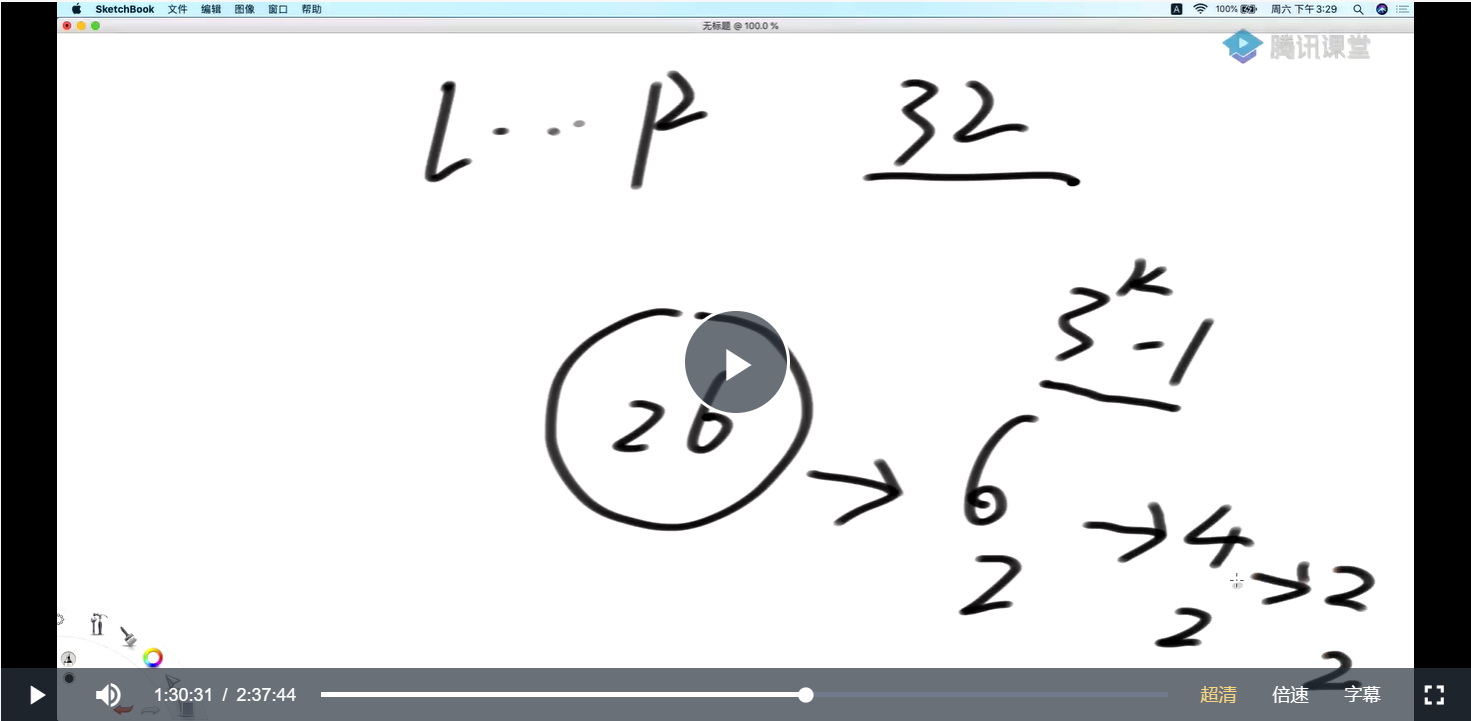 SketchBook 文件 编辑 图像 窗口 帮助 A 100% 周六 下午3:29
无标题 @ 100.0 %
腾讯课堂
l ... r 32
3^k - 1
26 → 6 → 4 → 2
2 2 2
1:30:31 / 2:37:44 超清 倍速 字幕